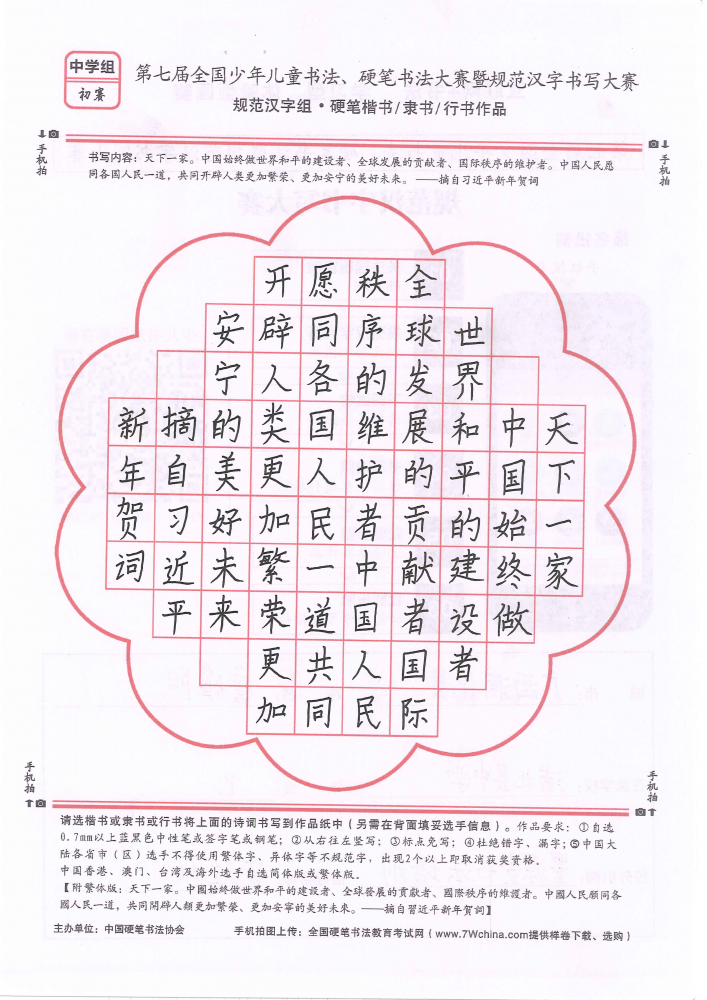 中学组
初赛
第七届全国少年儿童书法、硬笔书法大赛暨规范汉字书写大赛
规范汉字组·硬笔楷书/隶书/行书作品
手机拍
手机拍
书写内容：天下一家。中国始终做世界和平的建设者、全球发展的贡献者、国际秩序的维护者。中国人民愿
同各国人民一道，共同开辟人类更加繁荣、更加安宁的美好未来。 ——摘自习近平新年贺词
天下一家
中国始终做
世界和平的建设者
全球发展的贡献者国际
秩序的维护者中国人民
愿同各国人民一道共同
开辟人类更加繁荣更加
安宁的美好未来
摘自习近平
新年贺词
手机拍
手机拍
请选楷书或隶书或行书将上面的诗词书写到作品纸中（另需在背面填妥选手信息）。作品要求：①自选
0.7mm以上蓝黑色中性笔或签字笔或钢笔；②从右往左竖写；③标点免写；④杜绝错字、漏字；⑤中国大
陆各省市（区）选手不得使用繁体字、异体字等不规范字，出现2个以上即取消获奖资格.
中国香港、澳门、台湾及海外选手自选简体版或繁体版.
【附繁体版：天下一家。中國始終做世界和平的建設者、全球發展的貢獻者、國際秩序的維護者。中國人民願同各
國人民一道，共同開辟人類更加繁榮、更加安寧的美好未來。——摘自習近平新年賀詞】
主办单位：中国硬笔书法协会
手机拍图上传：全国硬笔书法教育考试网（www.7Wchina.com提供样卷下载、选购）